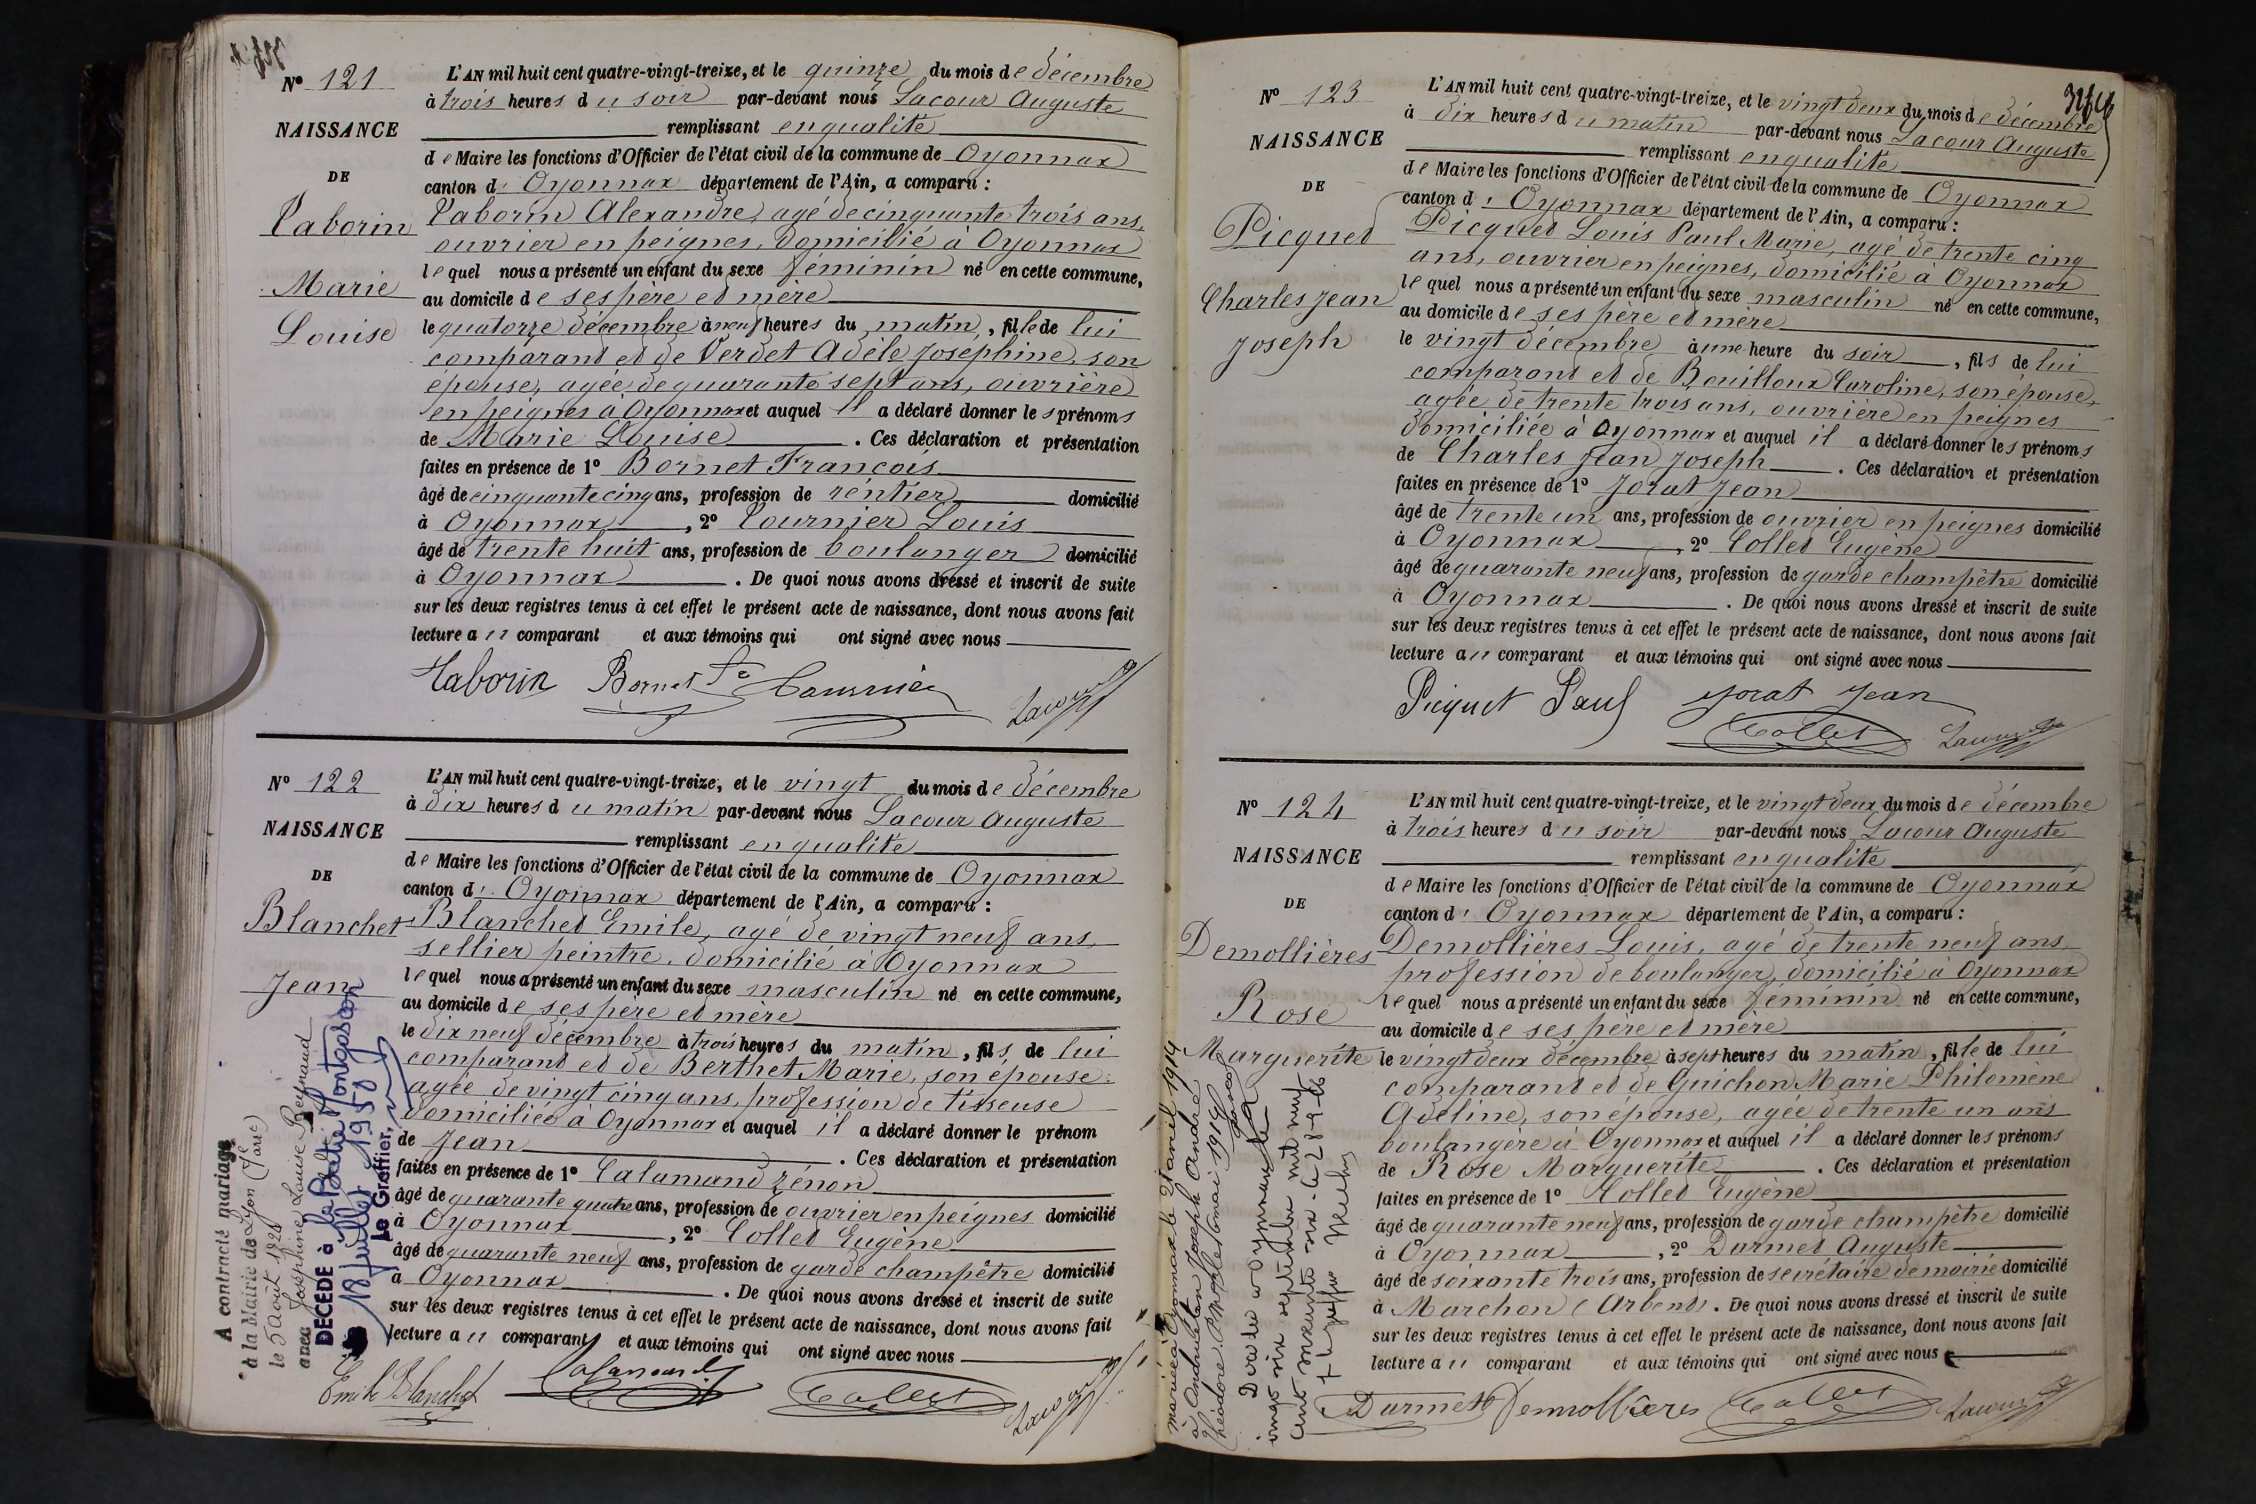 N° 121
NAISSANCE
DE
Taborin
Marie
Louise
L'AN mil huit cent quatre-vingt-treize, et le quinze du mois de décembre
à trois heures du soir par-devant nous Lacour Auguste
remplissant en qualité
de Maire les fonctions d'Officier de l'état civil de la commune de Oyonnax
canton d' Oyonnax département de l'Ain, a comparu :
Taborin Alexandre, agé de cinquante trois ans,
ouvrier en peignes, domicilié à Oyonnax
lequel nous a présenté un enfant du sexe féminin né en cette commune,
au domicile de ses père et mère
le quatorze décembre à neuf heures du matin, fille de lui
comparant et de Verdet Adèle Joséphine, son
épouse, agée de quarante sept ans, ouvrière
en peignes à Oyonnax et auquel il a déclaré donner les prénoms
de Marie Louise . Ces déclaration et présentation
faites en présence de 1° Bornet François
âgé de cinquante cinq ans, profession de réntier domicilié
à Oyonnax, 2° Tournier Louis
âgé de trente huit ans, profession de boulanger domicilié
à Oyonnax . De quoi nous avons dressé et inscrit de suite
sur les deux registres tenus à cet effet le présent acte de naissance, dont nous avons fait
lecture au comparant et aux témoins qui ont signé avec nous
Taborin Bornet Fs Tournier Lacour
N° 122
NAISSANCE
DE
Blanchet
Jean
L'AN mil huit cent quatre-vingt-treize, et le vingt du mois de décembre
à dix heures du matin par-devant nous Lacour Auguste
remplissant en qualité
de Maire les fonctions d'Officier de l'état civil de la commune de Oyonnax
canton d' Oyonnax département de l'Ain, a comparu :
Blanchet Emile, agé de vingt neuf ans,
sellier peintre, domicilié à Oyonnax
lequel nous a présenté un enfant du sexe masculin né en cette commune,
au domicile de ses père et mère
le dix neuf décembre à trois heures du matin, fils de lui
comparant et de Berthet Marie, son épouse,
agée de vingt cinq ans, profession de tisseuse
domiciliée à Oyonnax et auquel il a déclaré donner le prénom
de Jean . Ces déclaration et présentation
faites en présence de 1° Calamand Zénon
âgé de quarante quatre ans, profession de ouvrier en peignes domicilié
à Oyonnax, 2° Collet Eugène
âgé de quarante neuf ans, profession de garde champêtre domicilié
à Oyonnax . De quoi nous avons dressé et inscrit de suite
sur les deux registres tenus à cet effet le présent acte de naissance, dont nous avons fait
lecture au comparant et aux témoins qui ont signé avec nous
Emile Blanchet Calamand Collet Lacour
A contracté mariage
à la Mairie de Lyon (7e arrt)
le 5 août 1924
avec Joséphine Louise Reynaud
DÉCÉDÉ à la Batie Montgascon
18 juillet 1950
Le Greffier,
N° 123
NAISSANCE
DE
Picquet
Charles Jean
Joseph
L'AN mil huit cent quatre-vingt-treize, et le vingt deux du mois de décembre
à dix heures du matin par-devant nous Lacour Auguste
remplissant en qualité
de Maire les fonctions d'Officier de l'état civil de la commune de Oyonnax
canton d' Oyonnax département de l'Ain, a comparu :
Picquet Louis Paul Marie, agé de trente cinq
ans, ouvrier en peignes, domicilié à Oyonnax
lequel nous a présenté un enfant du sexe masculin né en cette commune,
au domicile de ses père et mère
le vingt décembre à une heure du soir, fils de lui
comparant et de Bouilloux Caroline, son épouse,
agée de trente trois ans, ouvrière en peignes
domiciliée à Oyonnax et auquel il a déclaré donner les prénoms
de Charles Jean Joseph . Ces déclaration et présentation
faites en présence de 1° Jorat Jean
âgé de trente un ans, profession de ouvrier en peignes domicilié
à Oyonnax, 2° Collet Eugène
âgé de quarante neuf ans, profession de garde champêtre domicilié
à Oyonnax . De quoi nous avons dressé et inscrit de suite
sur les deux registres tenus à cet effet le présent acte de naissance, dont nous avons fait
lecture au comparant et aux témoins qui ont signé avec nous
Picquet Paul Jorat Jean
Collet Lacour
N° 124
NAISSANCE
DE
Demollières
Rose
Marguerite
L'AN mil huit cent quatre-vingt-treize, et le vingt deux du mois de décembre
à trois heures du soir par-devant nous Lacour Auguste
remplissant en qualité
de Maire les fonctions d'Officier de l'état civil de la commune de Oyonnax
canton d' Oyonnax département de l'Ain, a comparu :
Demollières Louis, agé de trente neuf ans
profession de boulanger, domicilié à Oyonnax
lequel nous a présenté un enfant du sexe féminin né en cette commune,
au domicile de ses père et mère
le vingt deux décembre à sept heures du matin, fille de lui
comparant et de Guichon Marie Philomène
Adeline, son épouse, agée de trente un ans
boulangère à Oyonnax et auquel il a déclaré donner les prénoms
de Rose Marguerite . Ces déclaration et présentation
faites en présence de 1° Collet Eugène
âgé de quarante neuf ans, profession de garde champêtre domicilié
à Oyonnax, 2° Durmet Auguste
âgé de soixante trois ans, profession de secrétaire de mairie domicilié
à Marchon (Arbent) . De quoi nous avons dressé et inscrit de suite
sur les deux registres tenus à cet effet le présent acte de naissance, dont nous avons fait
lecture au comparant et aux témoins qui ont signé avec nous
Durmet Demollières Collet Lacour
mariée à Oyonnax le 21 avril 1914
à Joseph André
Théodore
Décédée à Oyonnax le
vingt six septembre mil neuf
cent soixante six. le 28-9-66